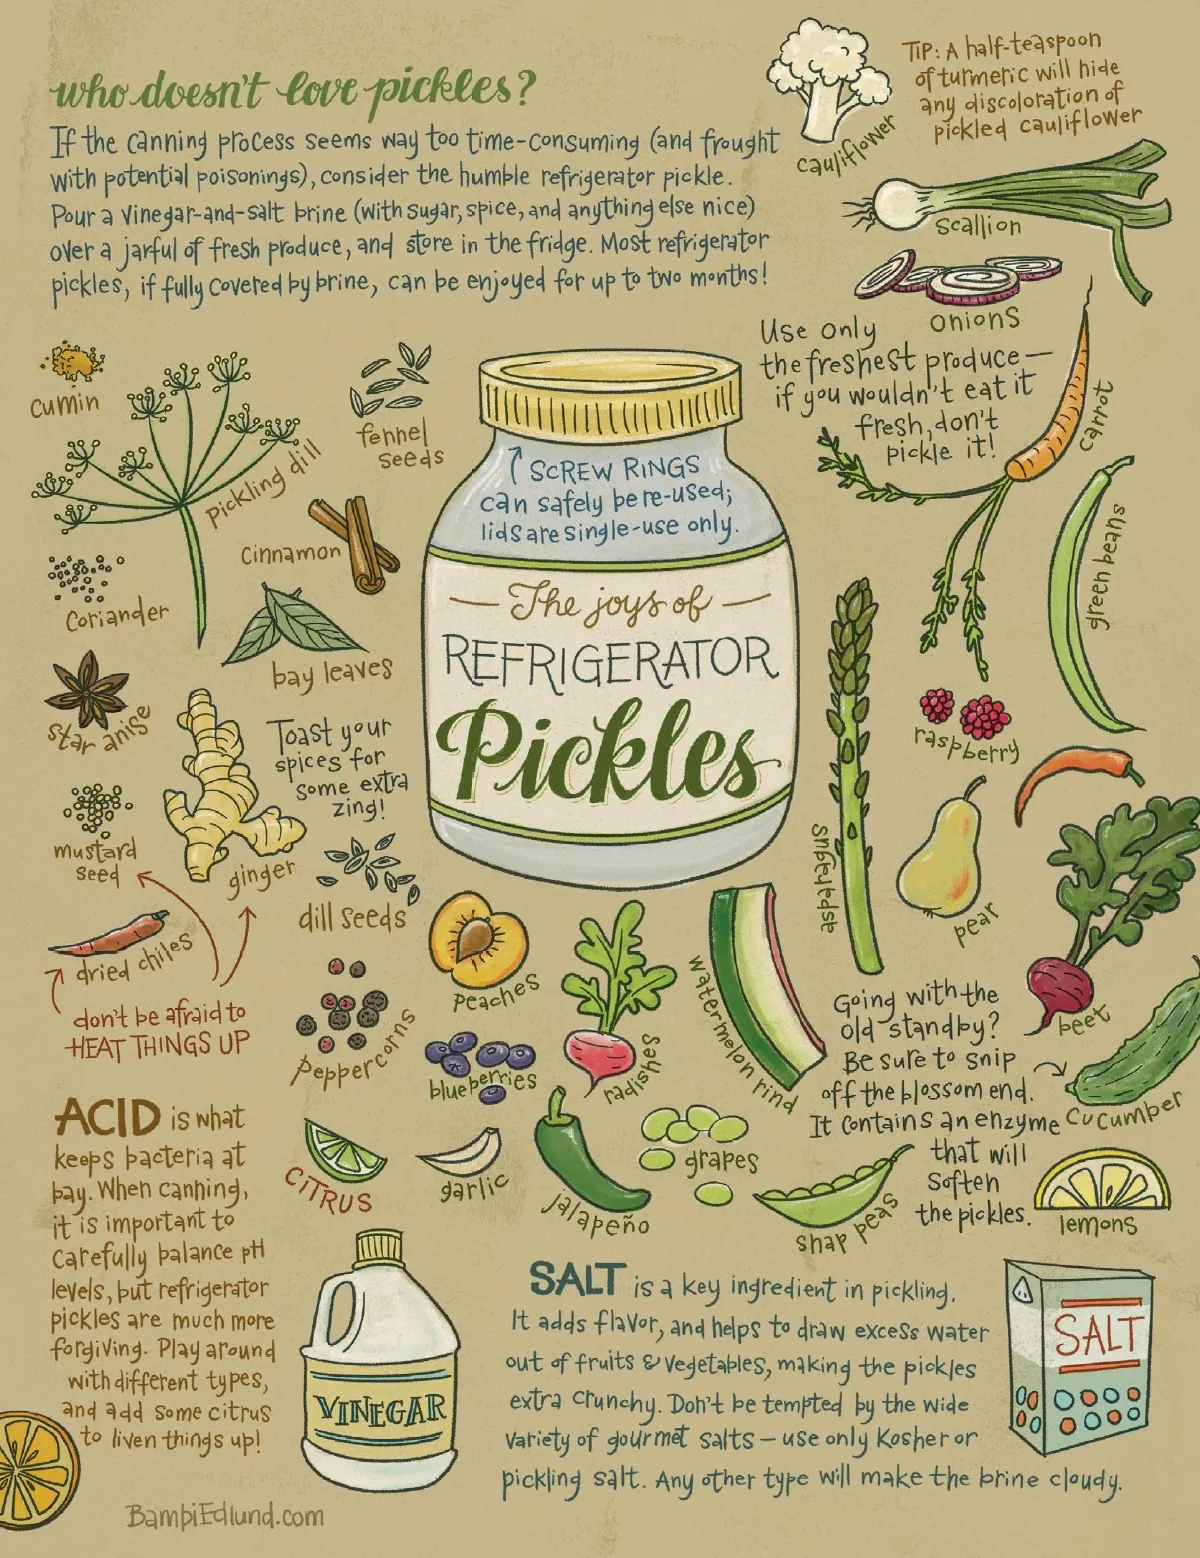 who doesn't love pickles?
If the canning process seems way too time-consuming (and frought
with potential poisonings), consider the humble refrigerator pickle.
Pour a vinegar-and-salt brine (with sugar, spice, and anything else nice)
over a jarful of fresh produce, and store in the fridge. Most refrigerator
pickles, if fully covered by brine, can be enjoyed for up to two months!
cauliflower
TIP: A half-teaspoon
of turmeric will hide
any discoloration of
pickled cauliflower
scallion
onions
Use only
the freshest produce—
if you wouldn't eat it
fresh, don't
pickle it!
carrot
green beans
cumin
pickling dill
fennel
seeds
cinnamon
coriander
bay leaves
star anise
Toast your
spices for
some extra
zing!
mustard
seed
ginger
dill seeds
dried chiles
don't be afraid to
HEAT THINGS UP
peppercorns
SCREW RINGS
can safely be re-used;
lids are single-use only.
— The joys of —
REFRIGERATOR
Pickles
asparagus
raspberry
pear
beet
peaches
blueberries
radishes
watermelon rind
Going with the
old standby?
Be sure to snip
off the blossom end.
It contains an enzyme
that will
soften
the pickles.
cucumber
lemons
CITRUS
garlic
jalapeño
grapes
snap peas
ACID is what
keeps bacteria at
bay. When canning,
it is important to
carefully balance pH
levels, but refrigerator
pickles are much more
forgiving. Play around
with different types,
and add some citrus
to liven things up!
VINEGAR
SALT is a key ingredient in pickling.
It adds flavor, and helps to draw excess water
out of fruits & vegetables, making the pickles
extra crunchy. Don't be tempted by the wide
variety of gourmet salts — use only Kosher or
pickling salt. Any other type will make the brine cloudy.
SALT
BampiEdlund.com